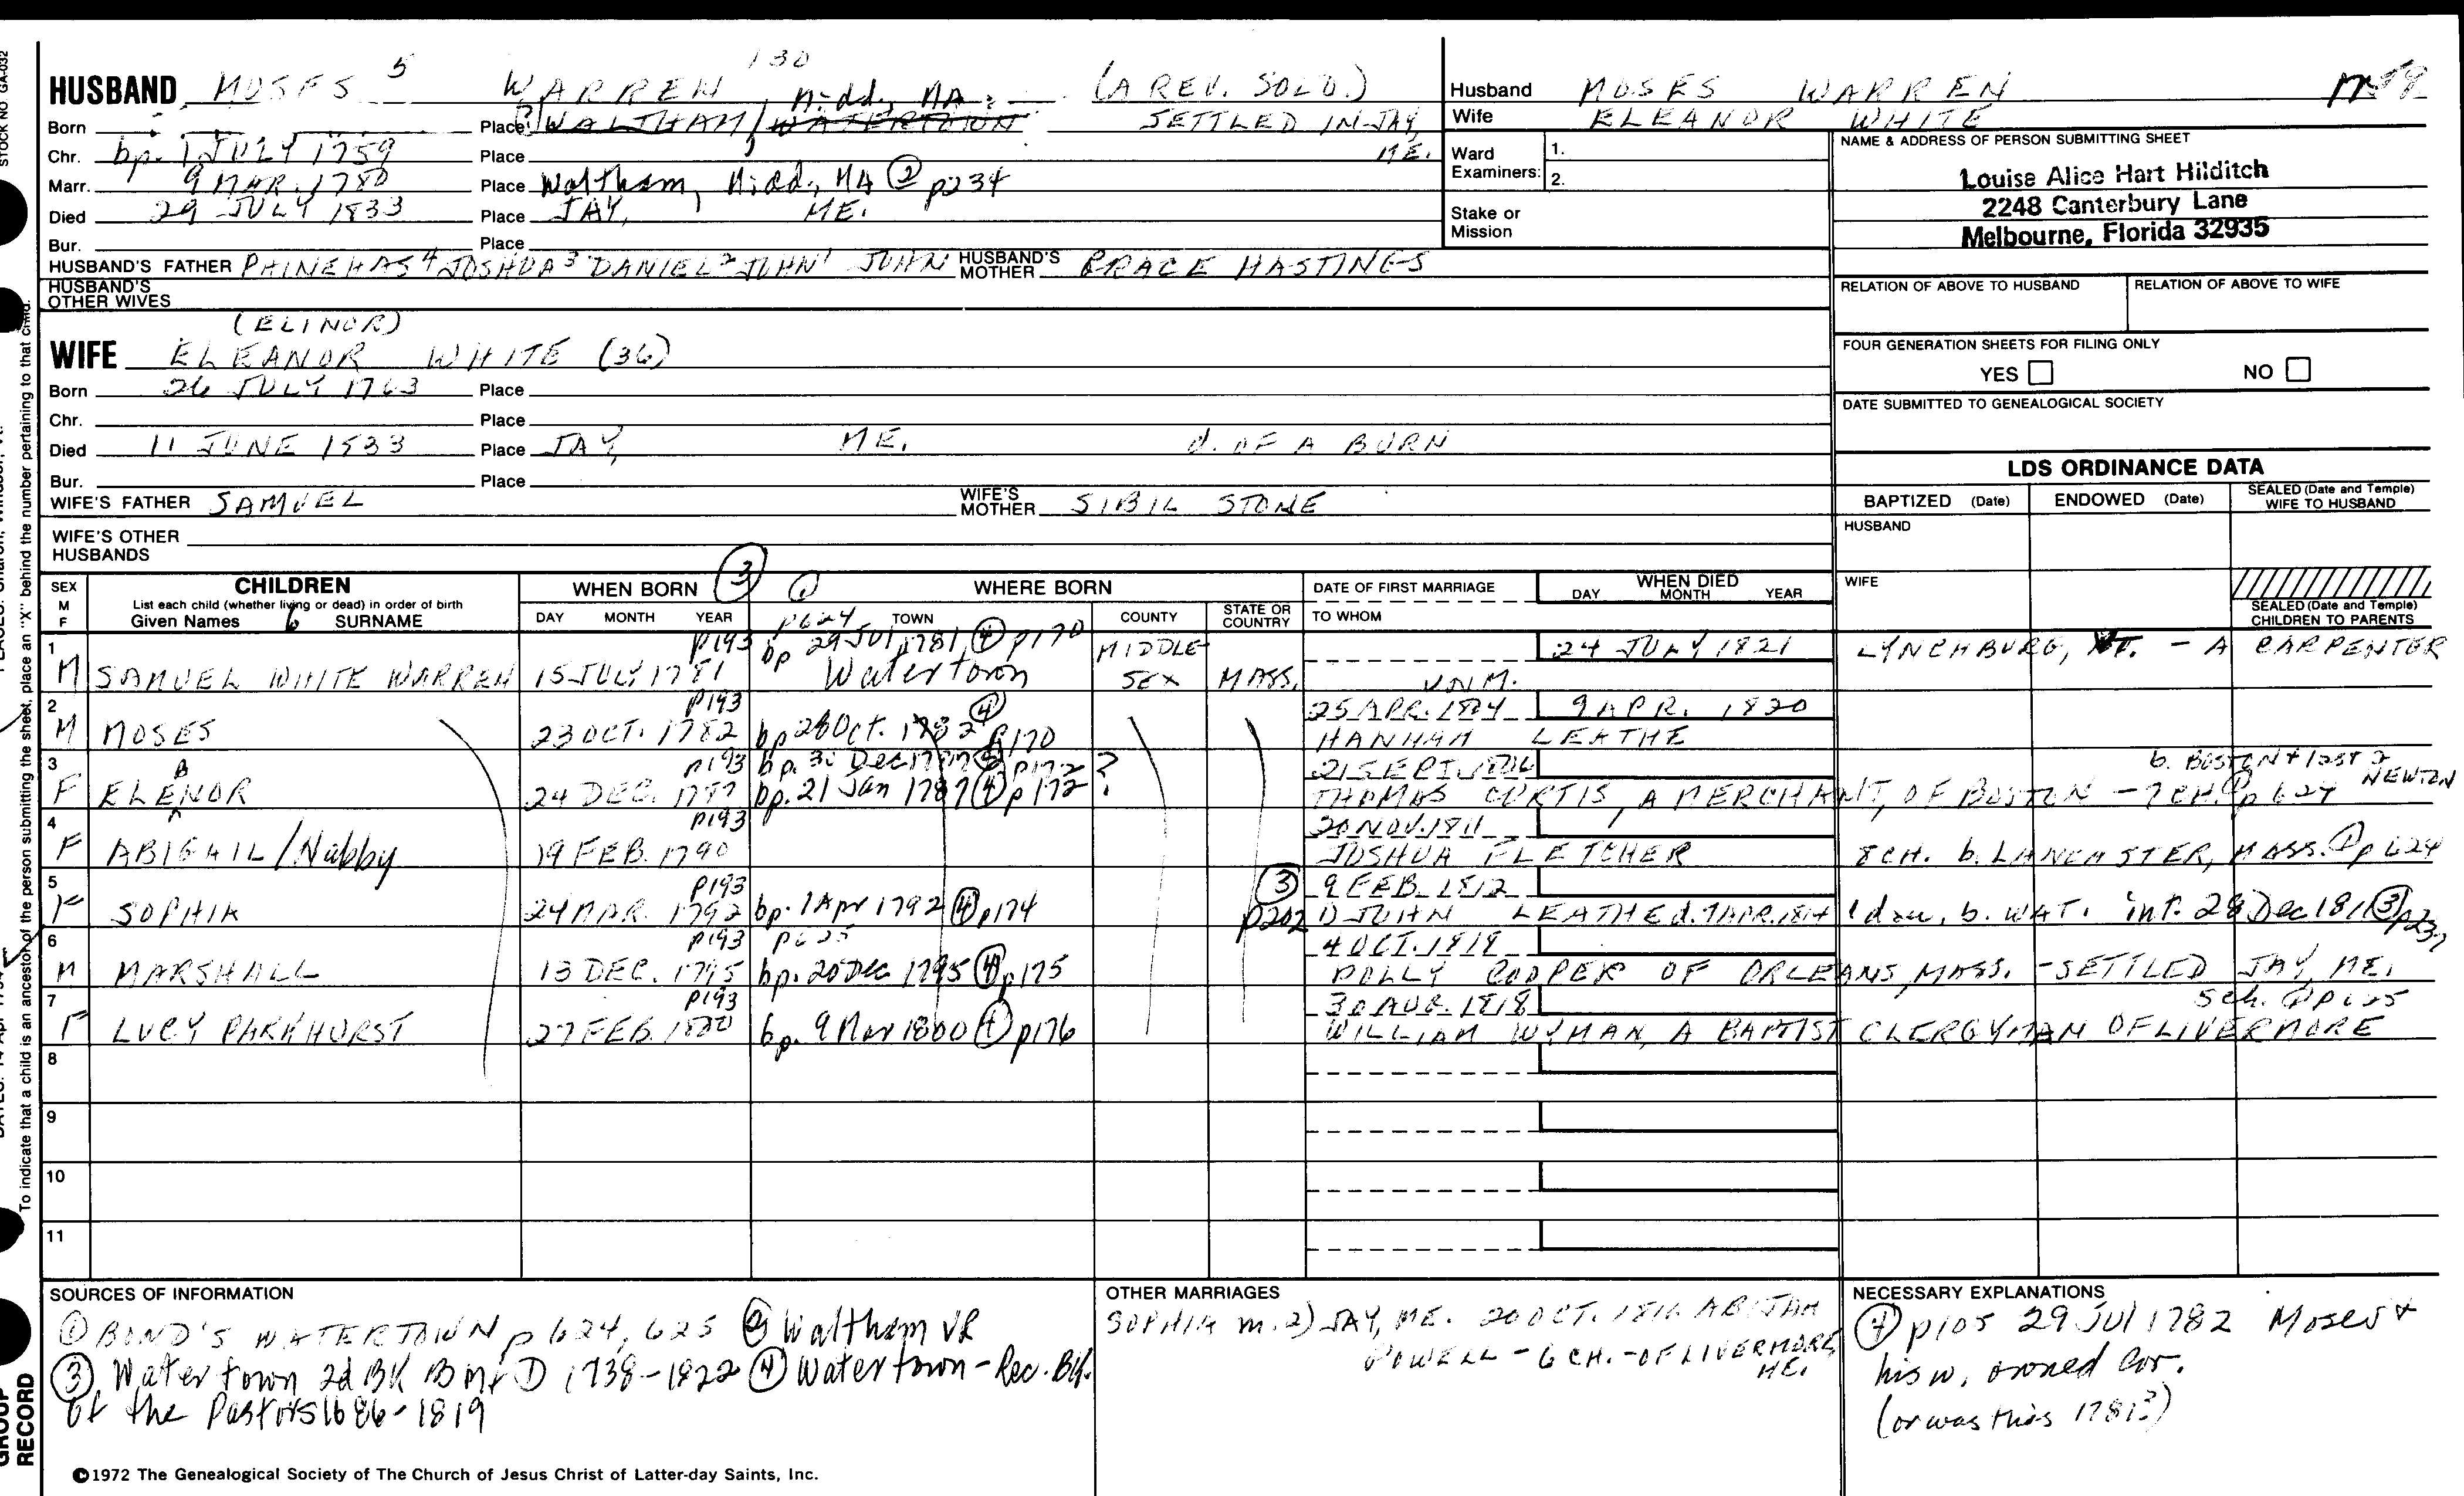 STOCK NO GA-032
HUSBAND MOSES 5 WARREN 130 (A REV. SOLD.)
Born Place WALTHAM / WATERTOWN Midd., MA SETTLED IN JAY, ME.
Chr. bp. 1 JULY 1759 Place
Marr. 9 MAR. 1780 Place Waltham, Midd., MA ② p234
Died 29 JULY 1833 Place JAY, ME.
Bur. Place
HUSBAND'S FATHER PHINEHAS 4 JOSHUA 3 DANIEL 2 JOHN 1 JOHN HUSBAND'S MOTHER GRACE HASTINGS
HUSBAND'S OTHER WIVES
Husband MOSES WARREN
Wife ELEANOR WHITE
Ward 1.
Examiners: 2.
Stake or Mission
NAME & ADDRESS OF PERSON SUBMITTING SHEET
Louise Alice Hart Hilditch
2248 Canterbury Lane
Melbourne, Florida 32935
RELATION OF ABOVE TO HUSBAND RELATION OF ABOVE TO WIFE
FOUR GENERATION SHEETS FOR FILING ONLY
YES NO
DATE SUBMITTED TO GENEALOGICAL SOCIETY
(ELINOR)
WIFE ELEANOR WHITE (36)
Born 26 JULY 1763 Place
Chr. Place
Died 11 JUNE 1833 Place JAY, ME. d. OF A BURN
Bur. Place
WIFE'S FATHER SAMUEL WIFE'S MOTHER SIBIL STONE
WIFE'S OTHER HUSBANDS
LDS ORDINANCE DATA
BAPTIZED (Date) ENDOWED (Date) SEALED (Date and Temple) WIFE TO HUSBAND
HUSBAND
WIFE
SEALED (Date and Temple) CHILDREN TO PARENTS
SEX M F
CHILDREN
List each child (whether living or dead) in order of birth
Given Names SURNAME
WHEN BORN ③
DAY MONTH YEAR
① WHERE BORN
p624 TOWN COUNTY STATE OR COUNTRY
DATE OF FIRST MARRIAGE
TO WHOM
WHEN DIED
DAY MONTH YEAR
1 p193 bp 29 Jul 1781 ④ p170 MIDDLE- 24 JULY 1821 LYNCHBURG, - A CARPENTER
M SAMUEL WHITE WARREN 15 JULY 1781 Watertown SEX MASS. UNM.
2 p193 ④ 25 APR. 1804 9 APR. 1820
M MOSES 23 OCT. 1782 bp 28 Oct. 1782 p170 HANNAH LEATHE
3 p193 bp. 30 Dec 1787 ④ p172 ? 21 SEPT. 1806 b. BOSTON + last 2 NEWTON
F ELENOR A 24 DEC. 1787 bp. 21 Jan 1787 ④ p172 THOMAS CURTIS, A MERCHANT, OF BOSTON - 7 CH. ① p624
4 p193 20 NOV. 1811
F ABIGAIL / Nabby 19 FEB. 1790 JOSHUA FLETCHER 8 CH. b. LANCASTER, MASS. ① p624
5 p193 ③ p202 9 FEB. 1812
F SOPHIA 24 MAR. 1792 bp. 1 Apr 1792 ④ p174 1) JOHN LEATHE d. 7 APR. 1814 1 dau, b. WAT. int. 28 Dec 1811 ③ p237
6 p193 p625 4 OCT. 1818
M MARSHALL 13 DEC. 1795 bp. 20 Dec 1795 ④ p175 POLLY COOPER OF ORLEANS, MASS. - SETTLED JAY, ME.
7 p193 30 AUG. 1818 5 ch. ① p625
F LUCY PARKHURST 27 FEB. 1800 bp. 9 Mar 1800 ④ p176 WILLIAM WYMAN, A BAPTIST CLERGYMAN OF LIVERMORE
8
9
10
11
SOURCES OF INFORMATION
① BOND'S WATERTOWN p 624, 625 ② Waltham VR
③ Watertown 2d BK B M + D 1738-1822 ④ Watertown - Rec. Bk.
of the Pastors 1686-1819
OTHER MARRIAGES
SOPHIA m. 2) JAY, ME. 20 OCT. 1816 ABIJAH
POWELL - 6 CH. - OF LIVERMORE, ME.
NECESSARY EXPLANATIONS
④ p105 29 Jul 1782 Moses +
his w, owned Cov.
(or was this 1781?)
©1972 The Genealogical Society of The Church of Jesus Christ of Latter-day Saints, Inc.
To indicate that a child is an ancestor of the person submitting the sheet, place an "X" behind the number pertaining to that child.
GROUP RECORD